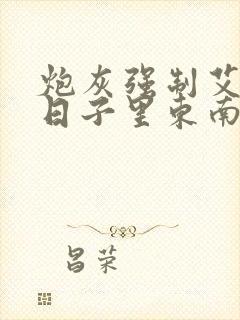 炮灰强制艾
日子里东南
昌荣